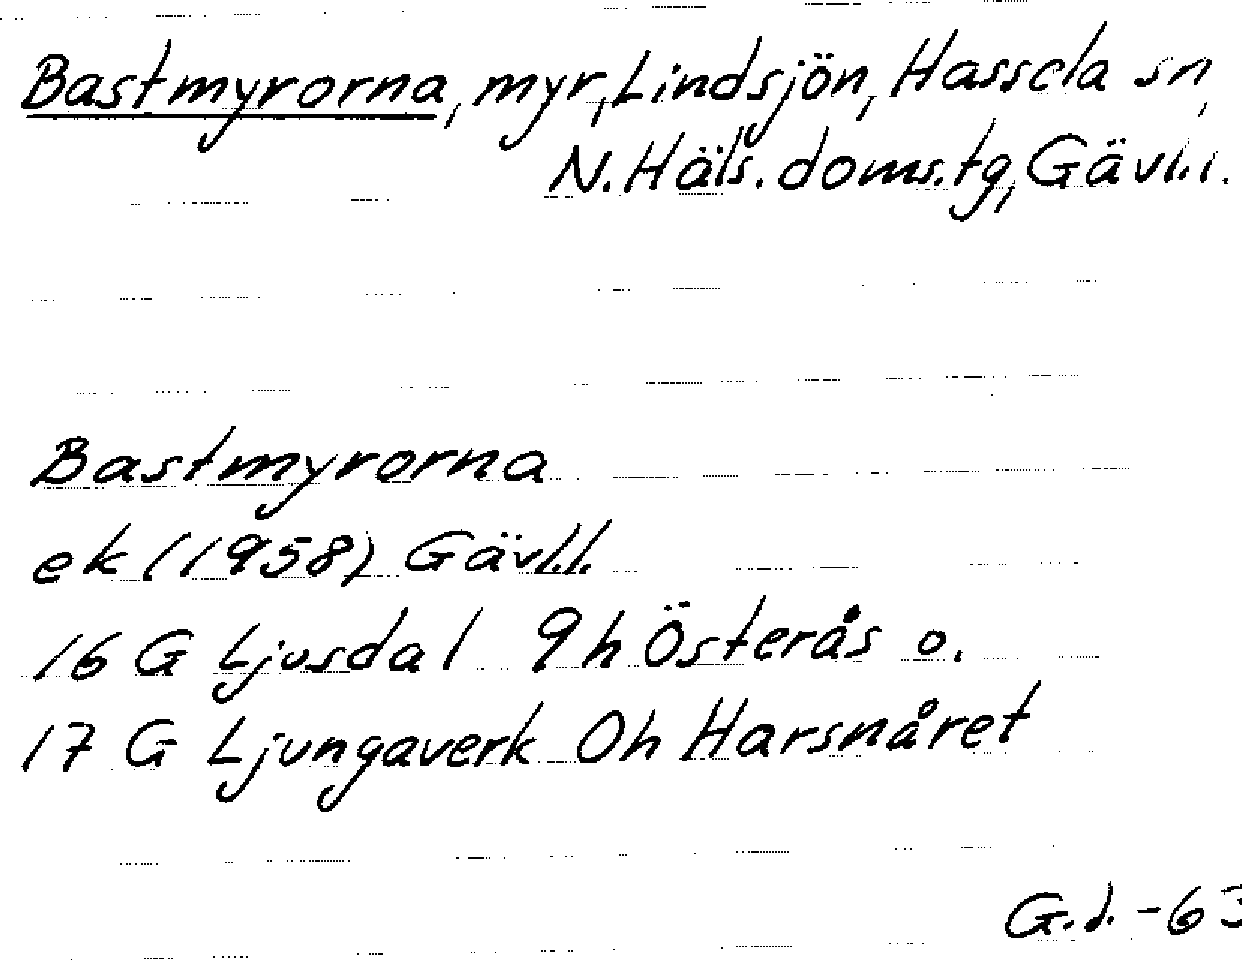 Bastmyrorna, myr, Lindsjön, Hassela sn,
N. Häls. doms.tg, Gävl.l.
Bastmyrorna
ek (1958) Gävl.l.
16 G Ljusdal 9h Österås o.
17 G Ljungaverk 0h Harsnåret
G.d. -63